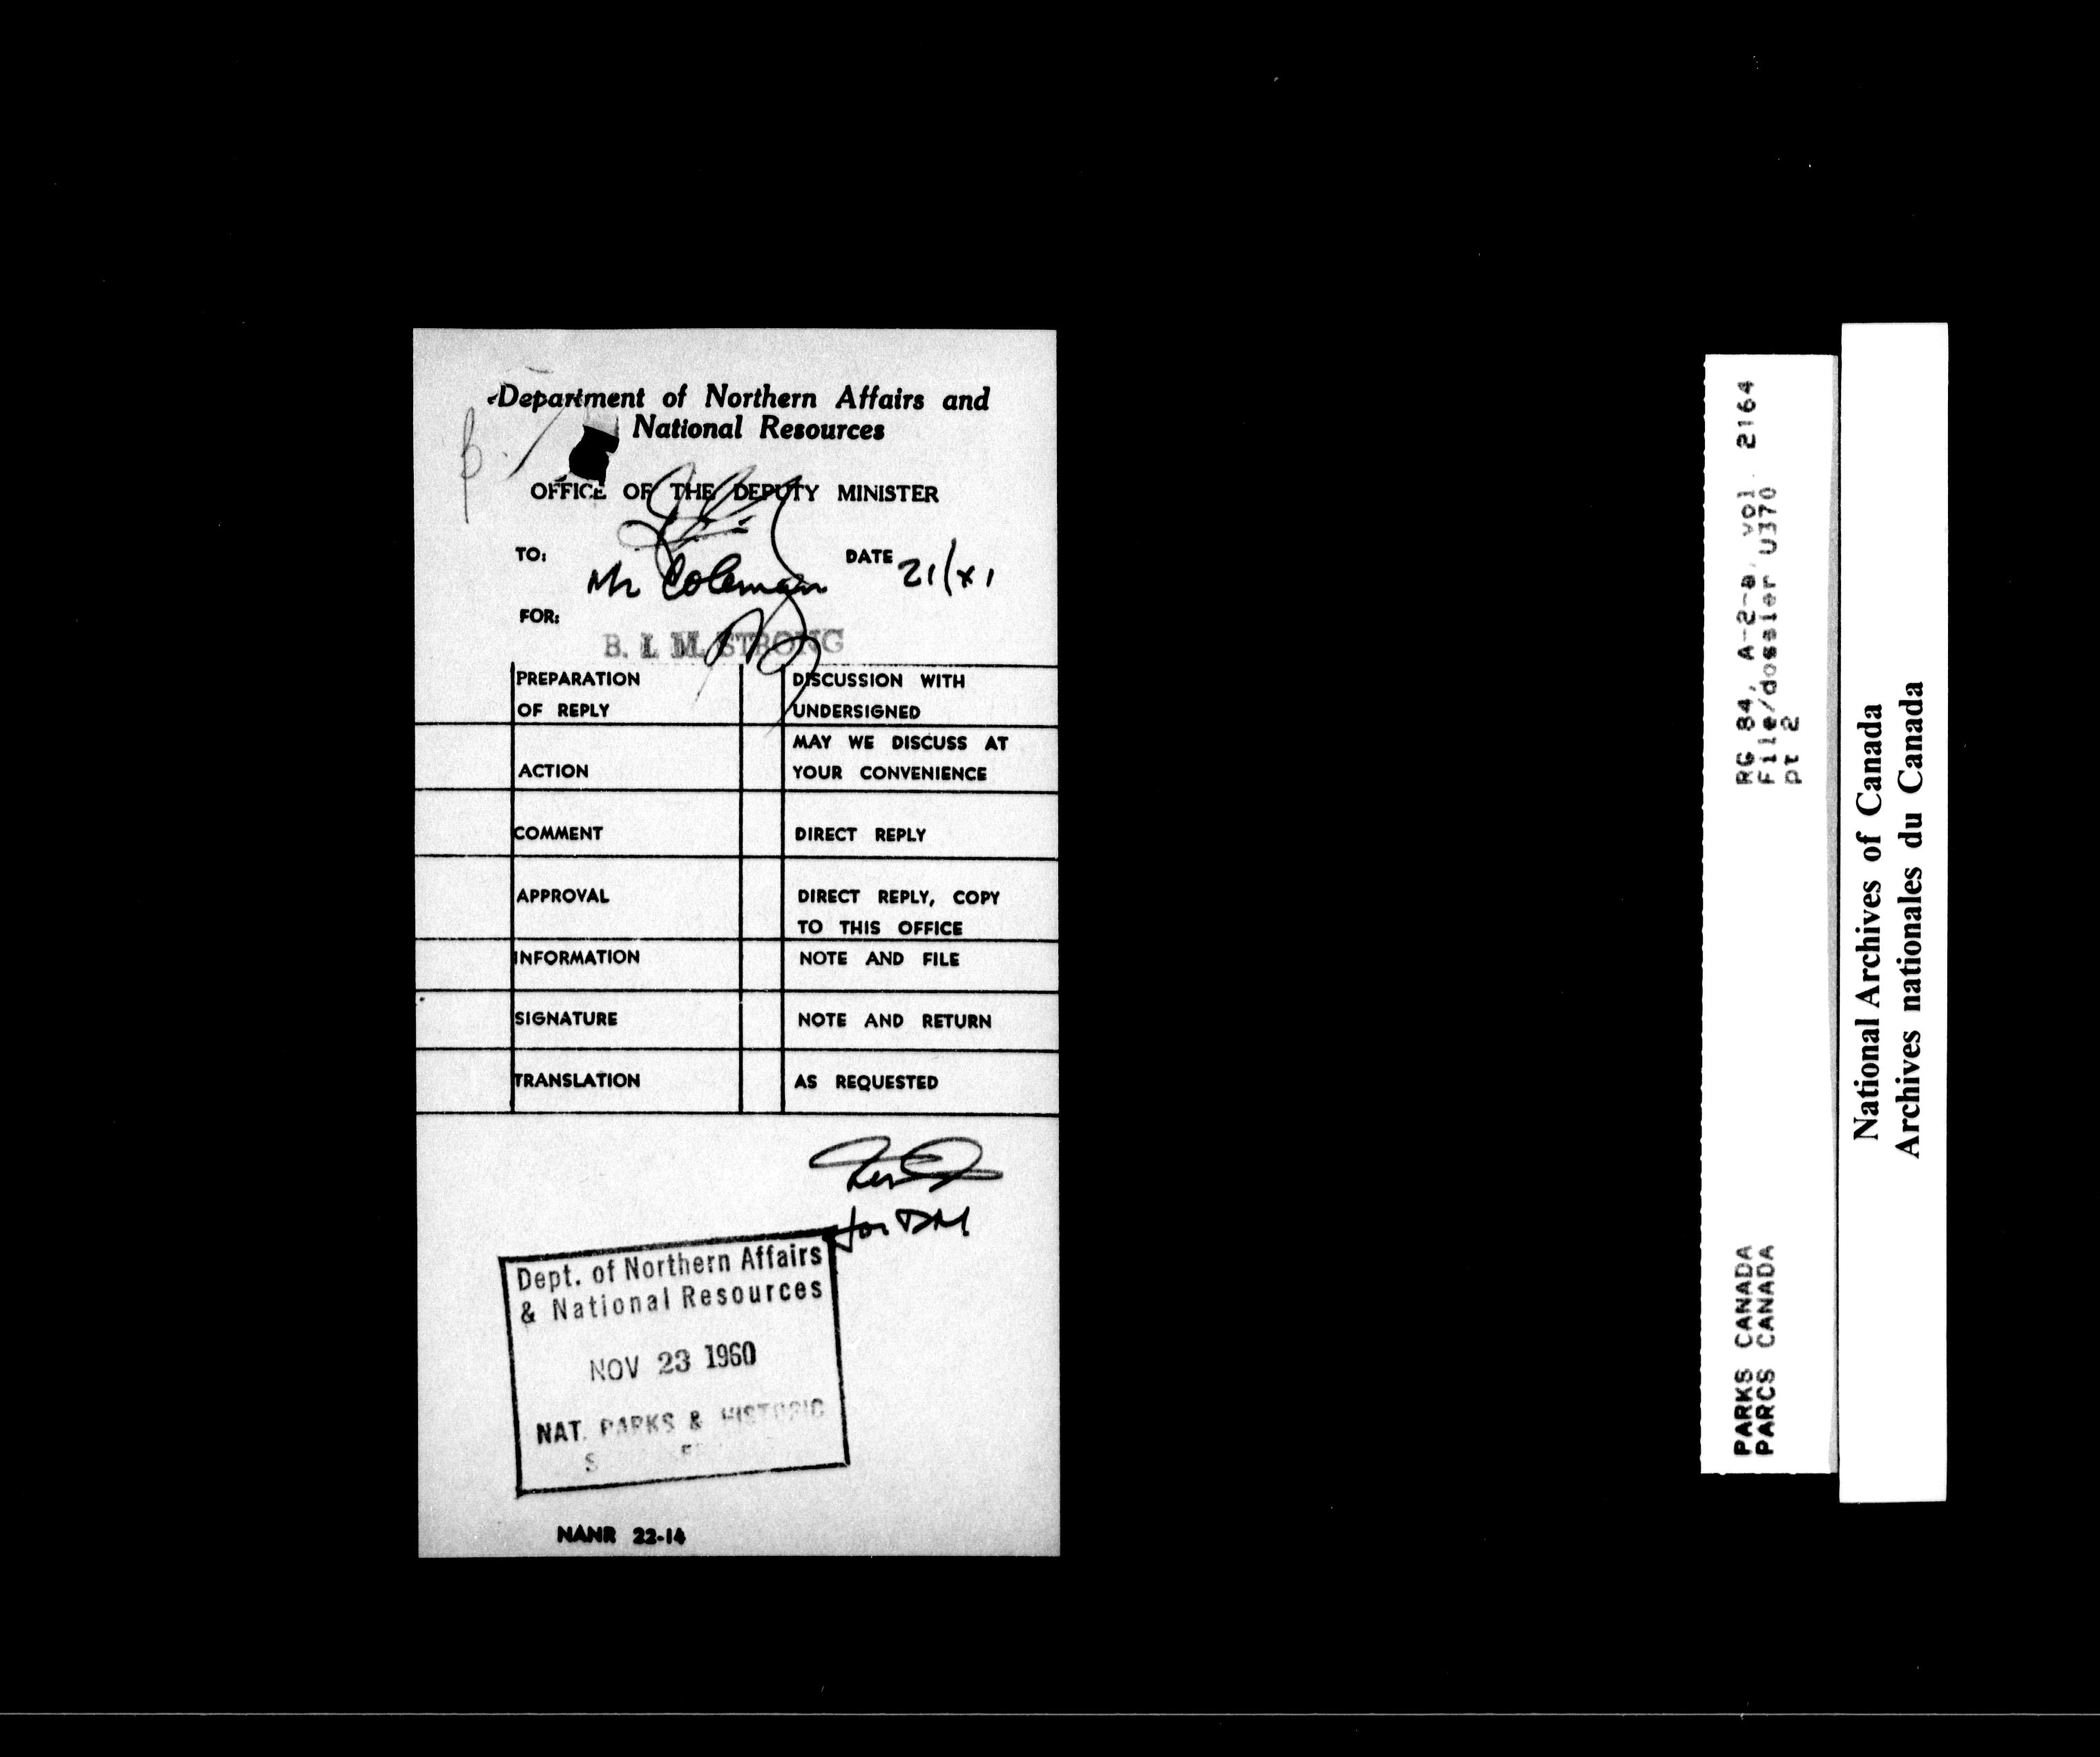 Department of Northern Affairs and
National Resources
OFFICE OF THE DEPUTY MINISTER
TO: Mr Coleman DATE 21/XI
FOR:
B. I. M. STRONG
PREPARATION OF REPLY
DISCUSSION WITH UNDERSIGNED
ACTION
MAY WE DISCUSS AT YOUR CONVENIENCE
COMMENT
DIRECT REPLY
APPROVAL
DIRECT REPLY, COPY TO THIS OFFICE
INFORMATION
NOTE AND FILE
SIGNATURE
NOTE AND RETURN
TRANSLATION
AS REQUESTED
for DM
Dept. of Northern Affairs
& National Resources
NOV 23 1960
NAT. PARKS & HISTORIC
NANR 22-14
RG 84, A-2-a, vol. 2164
File/dossier U370
pt 2
PARKS CANADA
PARCS CANADA
National Archives of Canada
Archives nationales du Canada